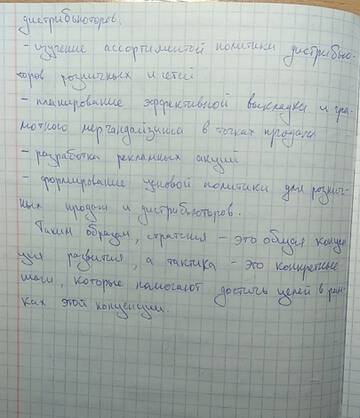 дистрибьюторов.
- изучение ассортиментой политики дистрибью-
торов розничных сетей
- планирование эффективной выкладки и гра-
мотного мерчандайзинга в точках продаж
- разработка рекламных акций
- формирование ценовой политики для рознич-
ных продаж и дистрибьюторов.
Таким образом, стратегия - это общая концеп-
ция развития, а тактика - это конкретные
шаги, которые помогают достичь целей в рам-
ках этой концепции.